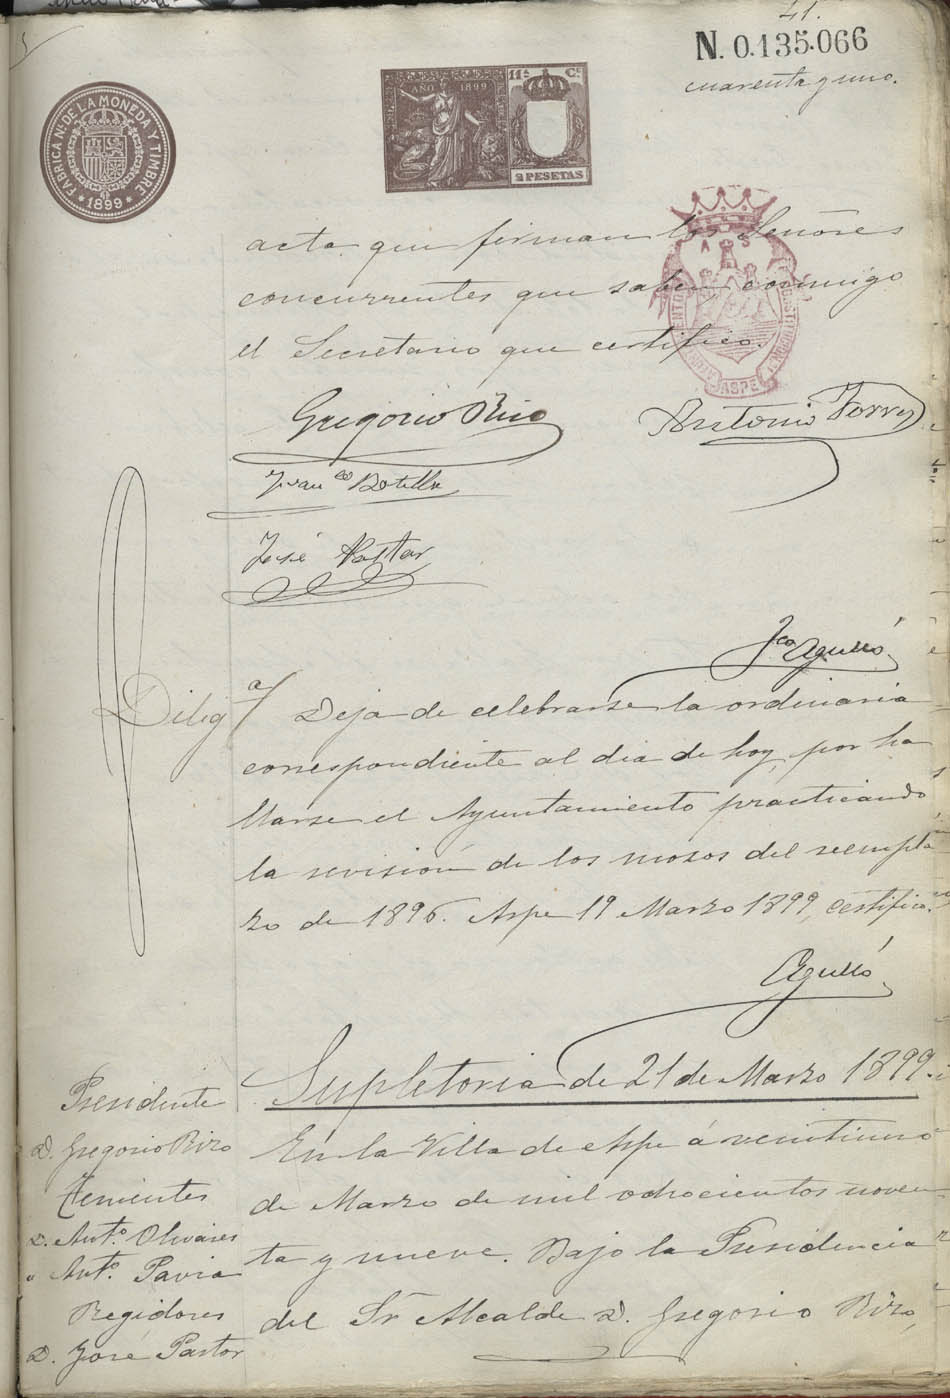 41.
N. 0.135.066
cuarenta y uno.
FABRICA Nl. DE LA MONEDA Y TIMBRE
1899
AÑO 1899
11ª Cª
2 PESETAS
acta que firman los Señores
concurrentes que saben conmigo
el Secretario que certifico.
A S
ASPE
Gregorio Rizo
Antonio Torres
Franco Botella
José Pastor
Fco Agulló
Diligª Deja de celebrarse la ordinaria
correspondiente al dia de hoy, por ha
llarse el Ayuntamiento practicando
la revisión de los mosos del reempla
zo de 1896. Aspe 19 Marzo 1899, certifico.
Agulló
Supletoria de 21 de Marzo 1899.
Presidente
D. Gregorio Rizo
Tenientes
D. Antº. Olivares
" Antº. Pavia
Regidores
D. José Pastor
En la Villa de Aspe á veintiuno
de Marzo de mil ochocientos noven
ta y nueve. Bajo la Presidencia
del Sr Alcalde D. Gregorio Rizo,